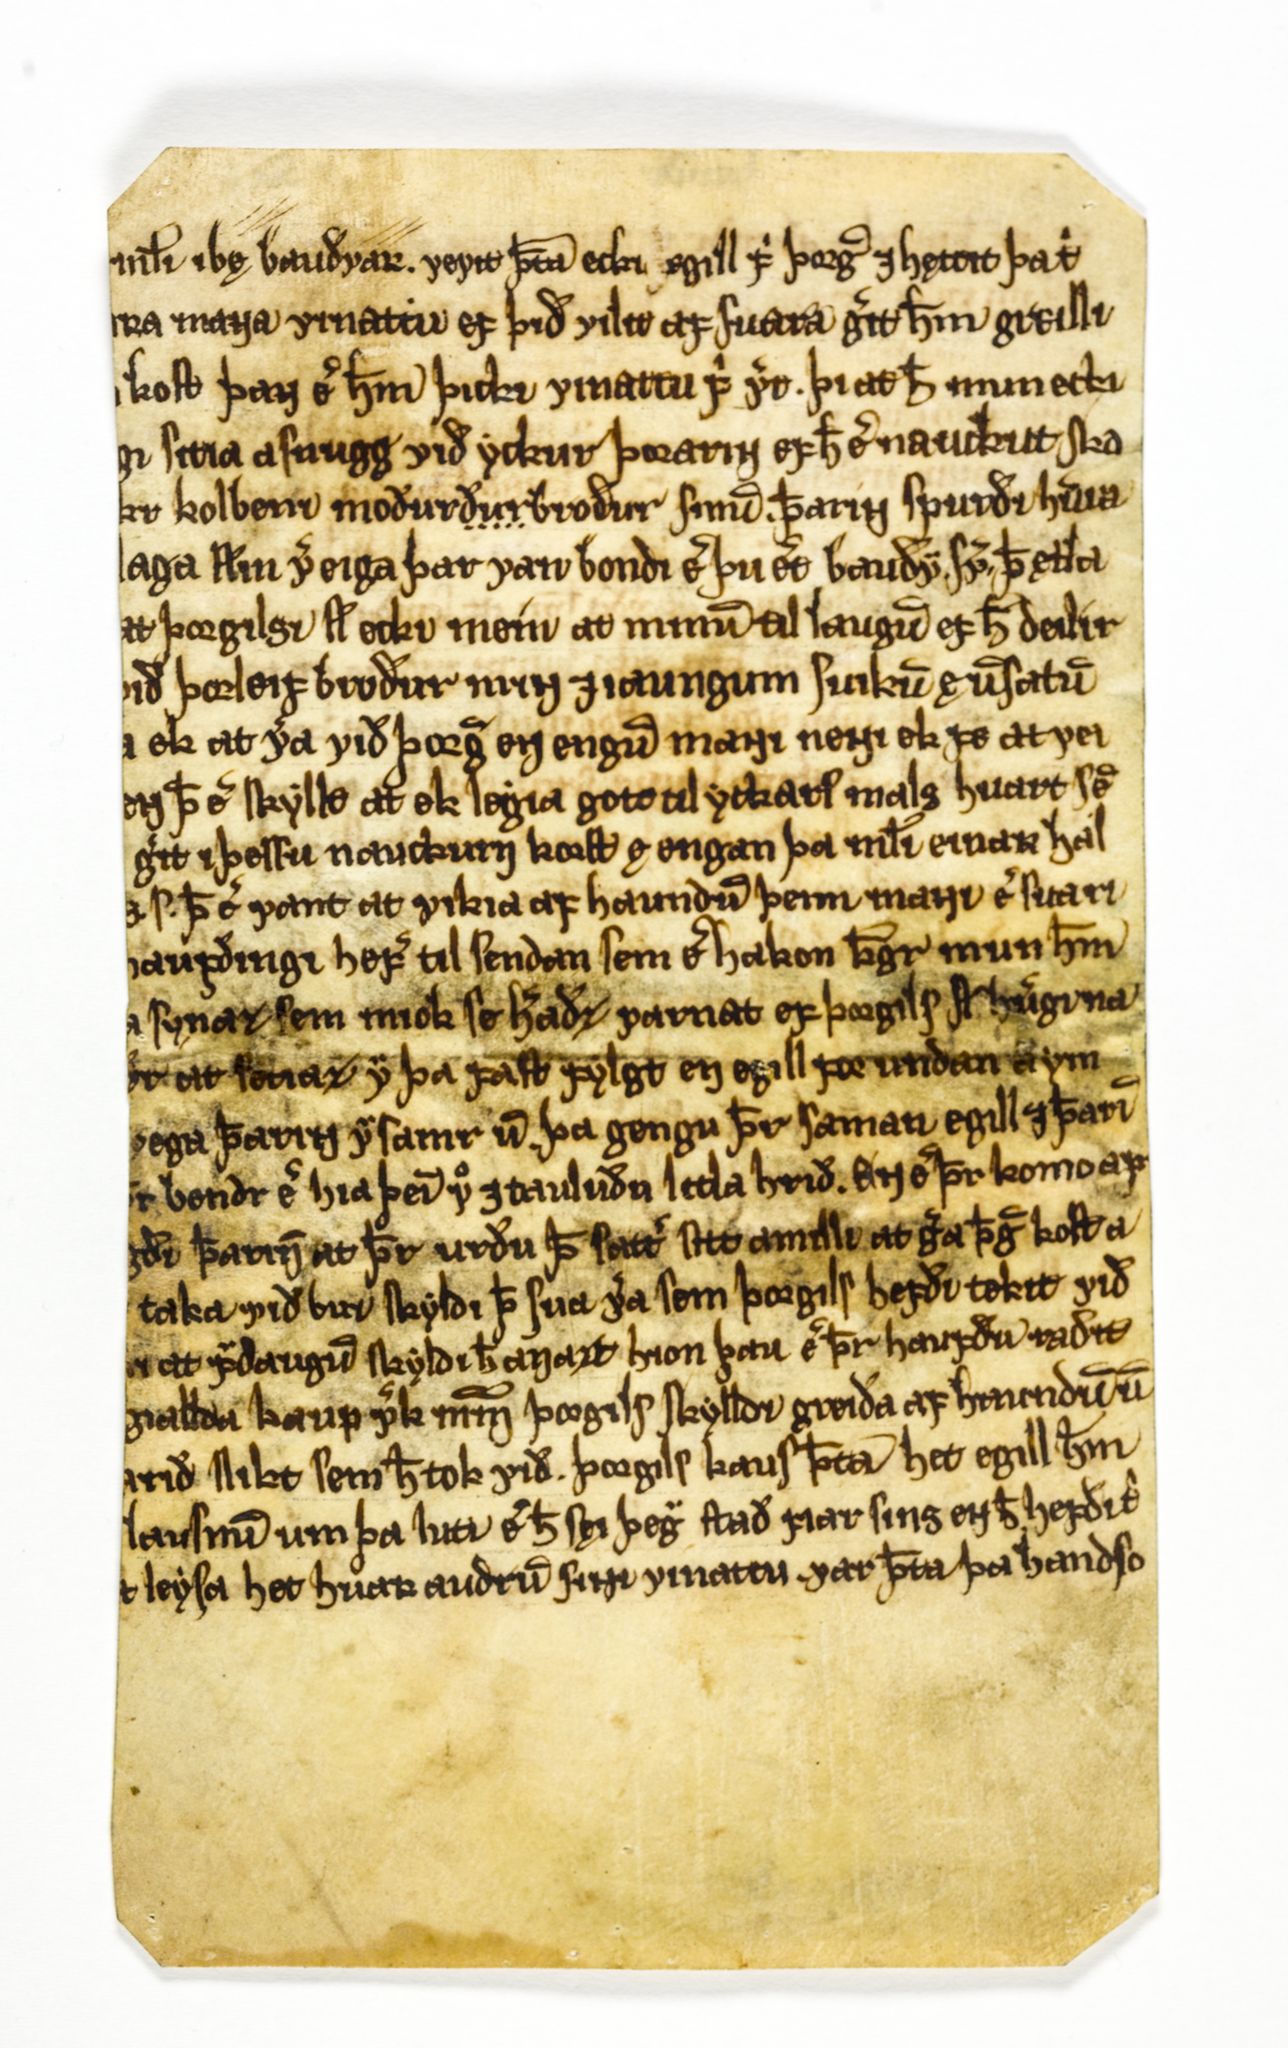 mƚi ibę bauðvar. veyit þ̄ta ecki egill f̛ þorg̛ ⁊ hętvit þat̛
ara maɴa vinattu ef þið vilit af suara g̛it h̄m greilli
kost þaɴ e̛ h̄m þicki vinattu f̛ v̛t. þiat h̄ mun ecki
gi sitia a snugg við yckur þorariɴ ef h̄ e̛ nauckut sko
kr kolbeini moðurðurbroður sinū. þ̄ariɴ spurði hưia
laga ſƚm v̛ eiga þar van bondi e̛ þu e̛t bauðv̛. sv̛. þ̄ ętla
at þorgilsi ſƚ ecki mein at minū til laugū ef h̄ deilir
við þorleif broður miɴ ⁊ iaungum suikū ę ūsatū
a ek at v̛a við þorg̛ eɴ engū maɴi neɴi ek fe at vei
eɴ þ̄ e̛ skyllt at ek leɢia goto til yckars mals huart sē
g̛it i þessu nauckurɴ kost ę engan þa mƚi einar hal
s. þ̄ e̛ vant at vikia af haundū þenn maɴi e̛ suari
haufðingi hef̛ til sendan sem e̛ hakon k̄gr mun h̄m
a synaz sem miok se h̛aðz varnat ef þorgils sƚ hưgi na
at setiaz v̛ þa fast fylgt eɴ egill for undan aym
vega þ̄ariɴ v̛ samr ū. þa gengu þ̄r saman egill ⁊ þ̄ari
r bondr e̛ hia þeī v° ⁊ tauluðu litla hrið. Eɴ e̛ þ̄r komo ap
gði þ̄ariɴ at þ̄r urðu þ̄ satt̛ sitt amilli at g̛a þg̛ kost a
taka við bui skyldi þ̄ sua v̛a sem þorgils hefði tekit við
i at f̛daugū skyldi h̄ aɴart hion þau e̛ þ̄r haufðu raðit
gialda kaup v̛k m̄ɴ þorgils skylldi greiða af hauendū ū
arið slikt sem h̄ tok við. þorgils kaus þ̄ta het egill h̄m
lausnū um þa luti e̛ h̄ sęi þeg̛ stað fiar sins eɴ h̄ hefði t̛
t leysa het huar auðrū siɴi vinattu. var þ̄ta þa handso